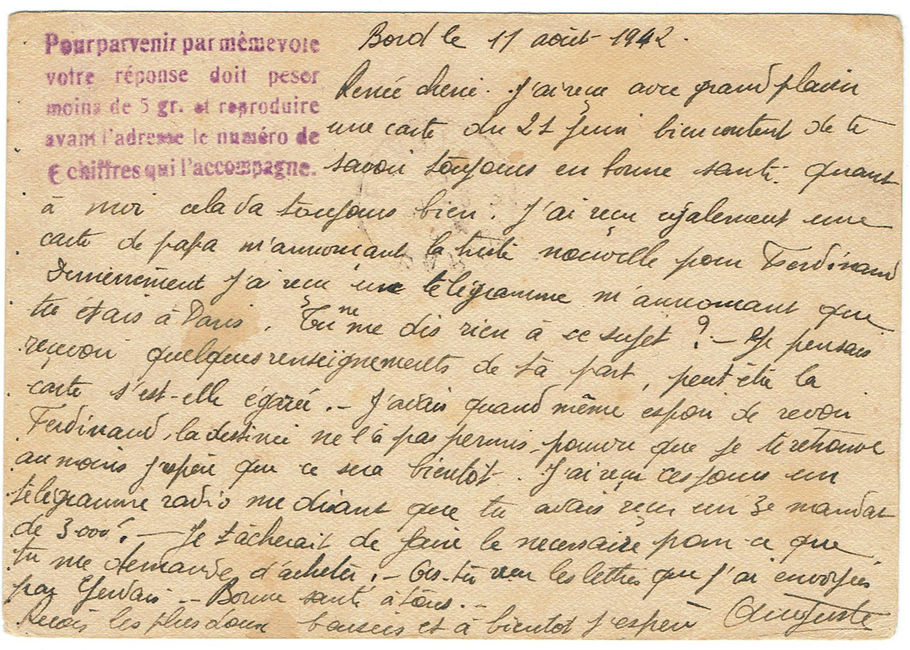 Pour parvenir par même voie
votre réponse doit peser
moins de 5 gr. et reproduire
avant l'adresse le numéro de
6 chiffres qui l'accompagne.
Bord le 11 août 1942.
Renée cherie. J'ai reçu avec grand plaisir
une carte du 21 Juin bien content de te
savoir toujours en bonne santé. Quant
à moi cela va toujours bien. J'ai reçu également une
carte de papa m'annoncant la triste nouvelle pour Ferdinand
Dernièrement j'ai reçu un télégramme m'annoncant que
tu étais à Paris. Tu ne me dis rien à ce sujet ? - Je pensais
reçevoir quelques renseignements de ta part, peut-être la
carte s'est-elle égarée. - J'avais quand même espoir de revoir
Ferdinand, la destinée ne l'à pas permis, pourvu que je te retrouve
au moins j'espère que ce sera bientôt. J'ai reçu ces jours un
télégramme radio me disant que tu avais reçu un 3e mandat
de 3000f. - Je tâcherait de faire le necessaire pour ce que
tu me demande d'acheter. - As-tu reçu les lettres que j'ai envoyées
par - Bonne santé à tous. -
Reçois les plus doux baisers et à bientot j'espère Auguste